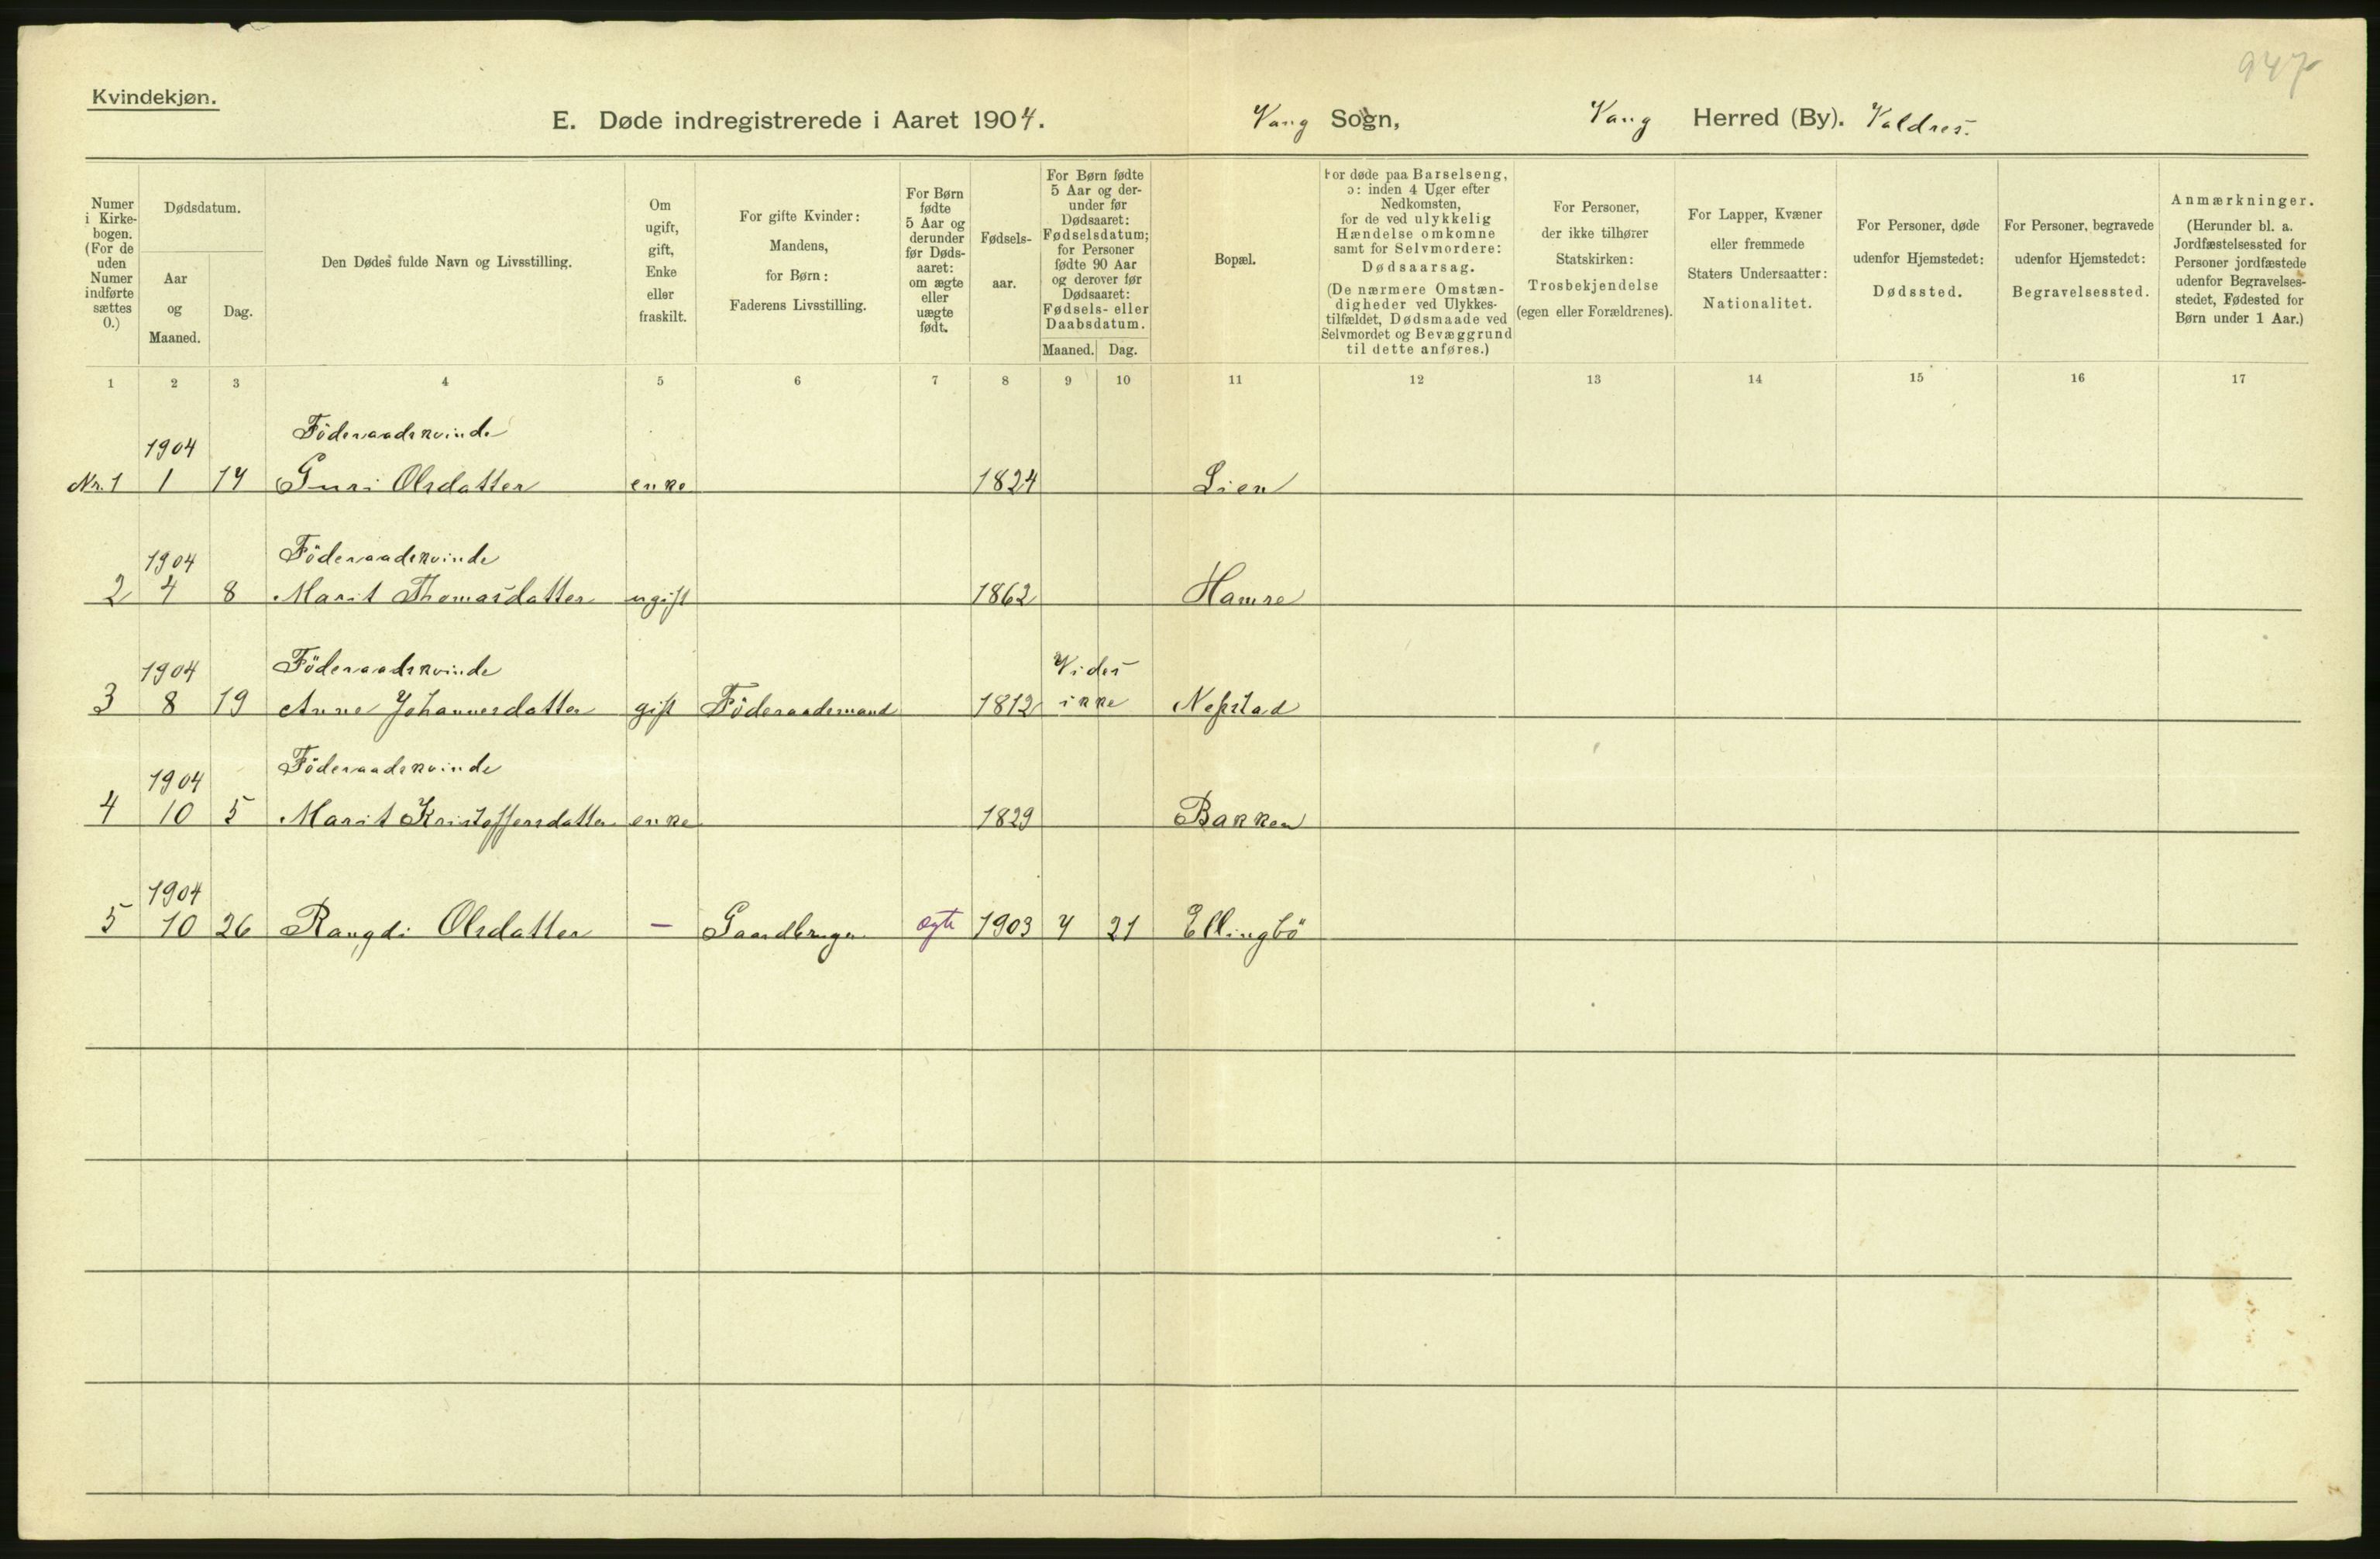 947
Kvindekjøn.
E. Døde indregistrerede i Aaret 1904. Vang Sogn, Vang Herred (By). Valdres.
Numer
i Kirke-
bogen.
(For de
uden
Numer
indførte
sættes
0.)
Dødsdatum.
Aar
og
Maaned.
Dag.
Den Dødes fulde Navn og Livsstilling.
Om
ugift,
gift,
Enke
eller
fraskilt.
For gifte Kvinder:
Mandens,
for Børn:
Faderens Livsstilling.
For Børn
fødte
5 Aar og
derunder
før Døds-
aaret:
om ægte
eller
uægte
født.
Fødsels-
aar.
For Børn fødte
5 Aar og der-
under før
Dødsaaret:
Fødselsdatum;
for Personer
fødte 90 Aar
og derover før
Dødsaaret:
Fødsels- eller
Daabsdatum.
Maaned. Dag.
Bopæl.
For døde paa Barselseng,
ɔ: inden 4 Uger efter
Nedkomsten,
for de ved ulykkelig
Hændelse omkomne
samt for Selvmordere:
Dødsaarsag.
(De nærmere Omstæn-
digheder ved Ulykkes-
tilfældet, Dødsmaade ved
Selvmordet og Bevæggrund
til dette anføres.)
For Personer,
der ikke tilhører
Statskirken:
Trosbekjendelse
(egen eller Forældrenes).
For Lapper, Kvæner
eller fremmede
Staters Undersaatter:
Nationalitet.
For Personer, døde
udenfor Hjemstedet:
Dødssted.
For Personer, begravede
udenfor Hjemstedet:
Begravelsessted.
Anmærkninger.
(Herunder bl. a.
Jordfæstelsessted for
Personer jordfæstede
udenfor Begravelses-
stedet, Fødested for
Børn under 1 Aar.)
1 2 3 4 5 6 7 8 9 10 11 12 13 14 15 16 17
1904 Föderaadskvinde
Nr. 1 1 14 Guri Olsdatter enke 1824 Lien
1904 Föderaadskvinde
2 4 8 Marit Thomasdatter ugift 1862 Hamre
1904 Föderaadskvinde Vides
3 8 19 Anne Johannesdatter gift Föderaadsmand 1812 ikke Nefstad
1904 Föderaadskvinde
4 10 5 Marit Kristoffersdatter enke 1829 Bakken
1904
5 10 26 Rangdi Olsdatter — Gaardbruger ægte 1903 4 21 Ellingbö